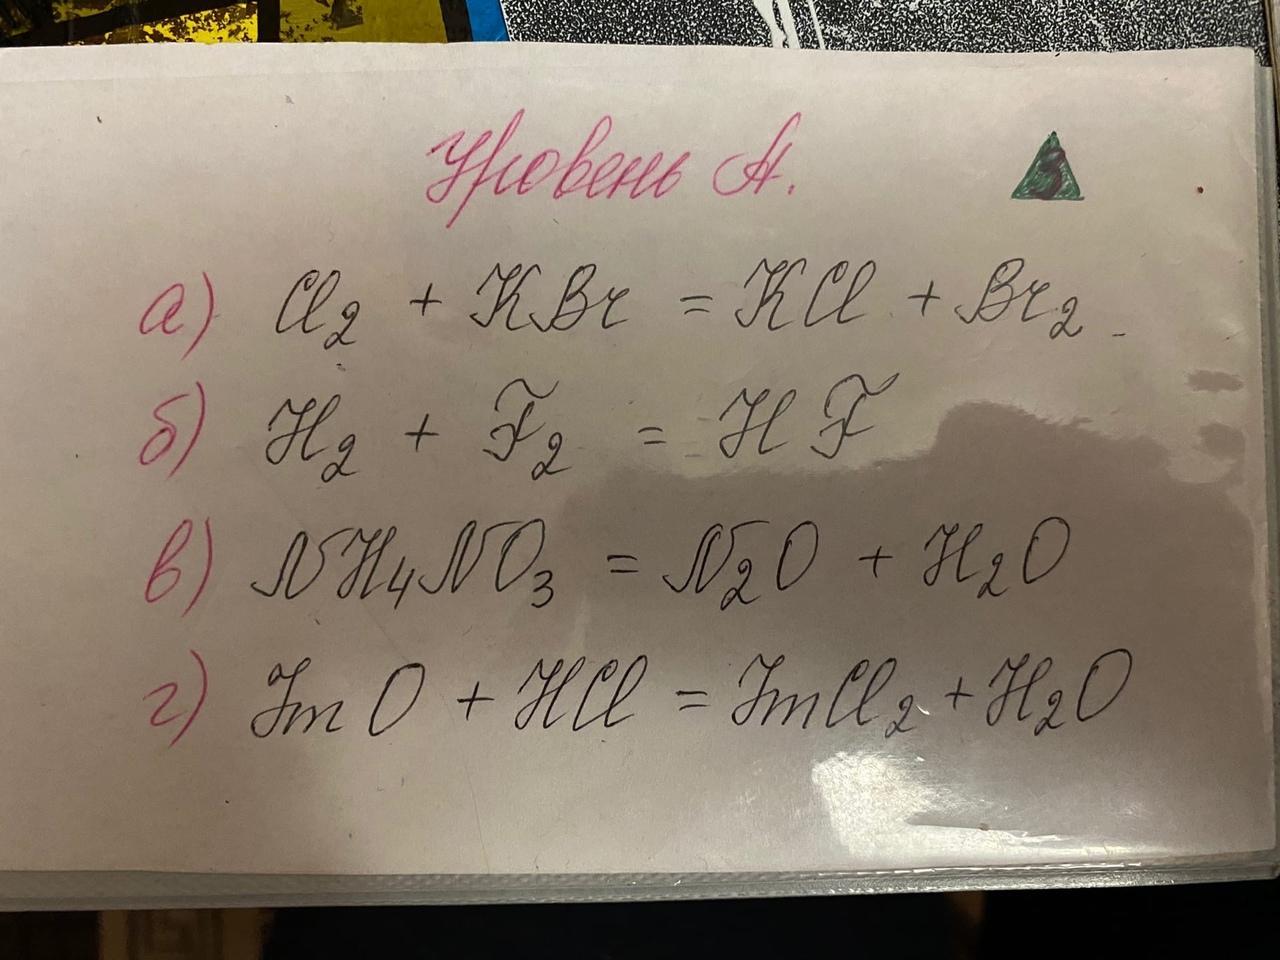 Уровень А.
3
а) Cl₂ + KBr = KCl + Br₂
б) H₂ + F₂ = HF
в) NH₄NO₃ = N₂O + H₂O
г) ZnO + HCl = ZnCl₂ + H₂O